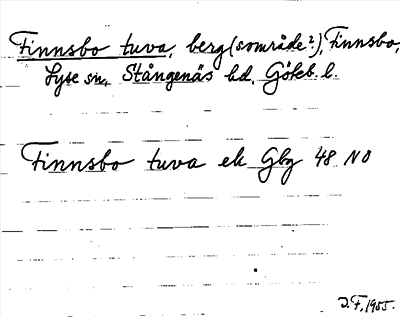 Finnsbo tuva, berg(sområde?), Finnsbo,
Lyse sn, Stångenäs hd, Göteb. l.
Finnsbo tuva ek Gbg 48 NO
D.F. 1955.